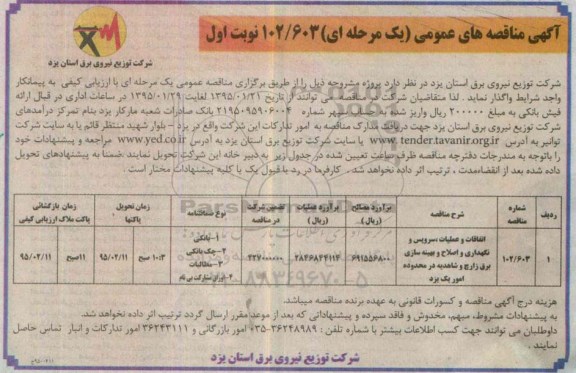 آگهی مناقصه های عمومی (یک مرحله ای) ۱۰۲/۶۰۳ نوبت اول
شرکت توزیع نیروی برق استان یزد
شرکت توزیع نیروی برق استان یزد در نظر دارد پروژه مشروحه ذیل را از طریق برگزاری مناقصه عمومی یک مرحله ای با ارزیابی کیفی به پیمانکار
واجد شرایط واگذار نماید . لذا متقاضیان شرکت در مناقصه می توانند از تاریخ ۱۳۹۵/۰۱/۲۱ لغایت ۱۳۹۵/۰۱/۲۹ در ساعات اداری در قبال ارائه
فیش بانکی به مبلغ ۲۰۰۰۰۰ ریال واریز شده به حساب سپهر شماره ۲۱۹۵۰۹۵۹۰۶۰۰۴ بانک صادرات شعبه مارکار یزد بنام تمرکز درآمدهای
شرکت توزیع نیروی برق استان یزد جهت دریافت مدارک مناقصه به امور تدارکات این شرکت واقع در یزد – بلوار شهید منتظر قائم یا به سایت شرکت
توانیر به آدرس www.tender.tavanir.org.ir یا سایت شرکت توزیع برق استان یزد به آدرس www.yed.co.ir مراجعه و پیشنهادات خود
را باتوجه به مندرجات دفترچه مناقصه ظرف ساعت تعیین شده در جدول زیر به دبیر خانه این شرکت تحویل نمایند .ضمنا به پیشنهادهای تحویل
داده شده بعد از انقضاءمدت ، ترتیب اثر داده نخواهد شد. کارفرما در رد یا قبول یک یا کلیه پیشنهادات مختار است .
ردیف شماره مناقصه شرح مناقصه برآورد مصالح (ریال) برآورد عملیات (ریال) تضمین شرکت در مناقصه نوع ضمانتنامه زمان تحویل پاکتها زمان بازگشائی پاکت ملاک ارزیابی کیفی
۱ ۱۰۲/۶۰۳ اتفاقات و عملیات ،سرویس و نگهداری و اصلاح و بهینه سازی برق زارچ و شاهدیه در محدوده امور یک یزد ۶۹۱۵۵۶۸۰۰ ۲۸۴۶۸۴۴۱۱۴ ۲۲۷۰۰۰۰۰۰ ۱–بانکی ۲–چک بانکی ۳–مطالبات ۴–اوراق مشارکت بی نام ۱۰:۳۰ صبح ۹۵/۰۲/۱۱ ۱۱صبح ۹۵/۰۲/۱۱
هزینه درج آگهی مناقصه و کسورات قانونی به عهده برنده مناقصه میباشد.
به پیشنهادات مشروط، مبهم، مخدوش و فاقد سپرده و پیشنهاداتی که بعد از موعد مقرر ارسال گردد ترتیب اثر داده نخواهد شد.
داوطلبان می توانند جهت کسب اطلاعات بیشتر با شماره تلفن : ۳۶۲۴۸۹۸۹-۰۳۵ امور بازرگانی و ۳۶۲۴۳۱۱۱ امور تدارکات و انبار تماس حاصل
نمایند .
شرکت توزیع نیروی برق استان یزد